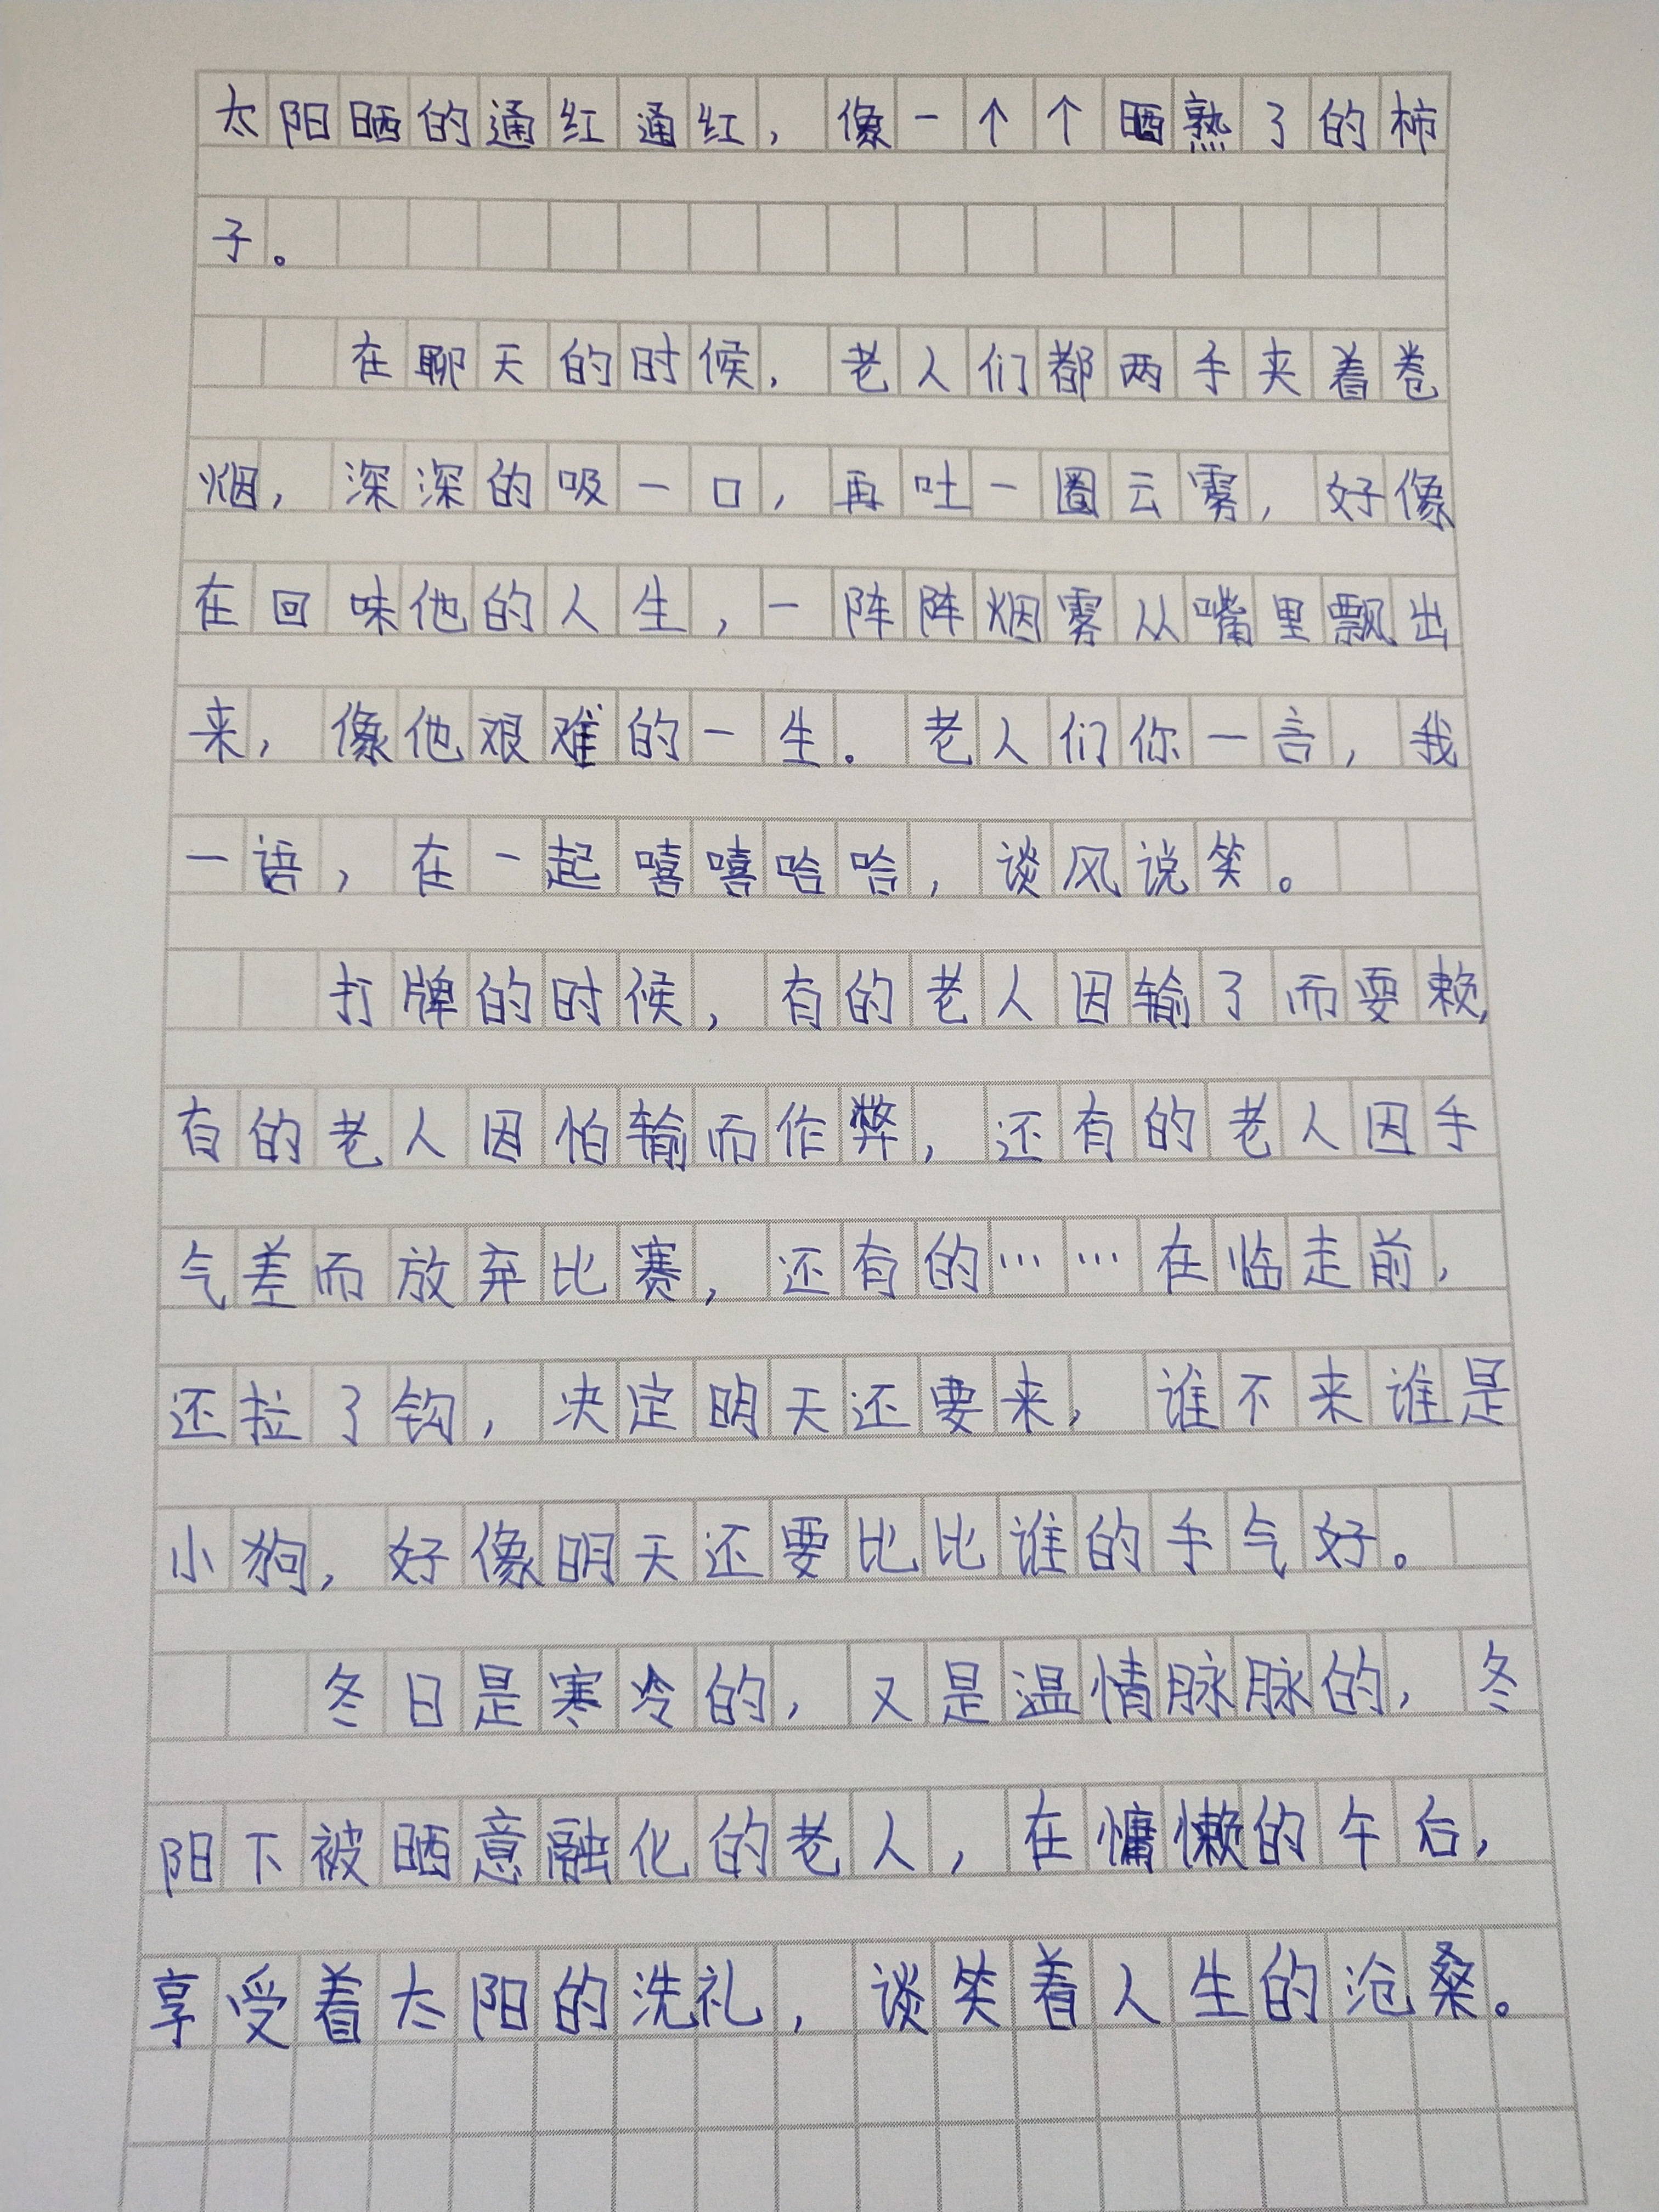 太阳晒的通红通红，像一个个晒熟了的柿
子。
在聊天的时候，老人们都两手夹着卷
烟，深深的吸一口，再吐一圈云雾，好像
在回味他的人生，一阵阵烟雾从嘴里飘出
来，像他艰难的一生。老人们你一言，我
一语，在一起嘻嘻哈哈，谈风说笑。
打牌的时候，有的老人因输了而耍赖，
有的老人因怕输而作弊，还有的老人因手
气差而放弃比赛，还有的……在临走前，
还拉了钩，决定明天还要来，谁不来谁是
小狗，好像明天还要比比谁的手气好。
冬日是寒冷的，又是温情脉脉的，冬
阳下被晒意融化的老人，在慵懒的午后，
享受着太阳的洗礼，谈笑着人生的沧桑。